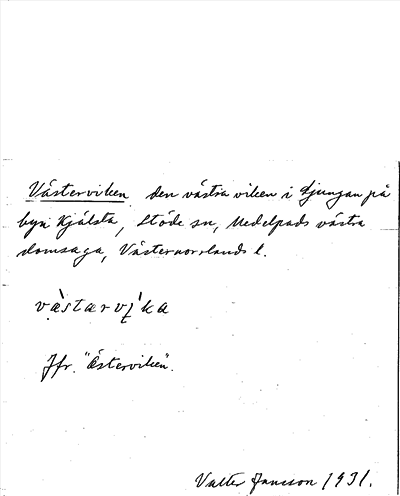 Västerviken den västra viken i Ljungan på
byn Kjälsta, Stöde sn, Medelpads västra
domsaga, Västernorrlands l.
væ̀starvı̨̀ka
Jfr. "Österviken".
Valter Jansson 1931.